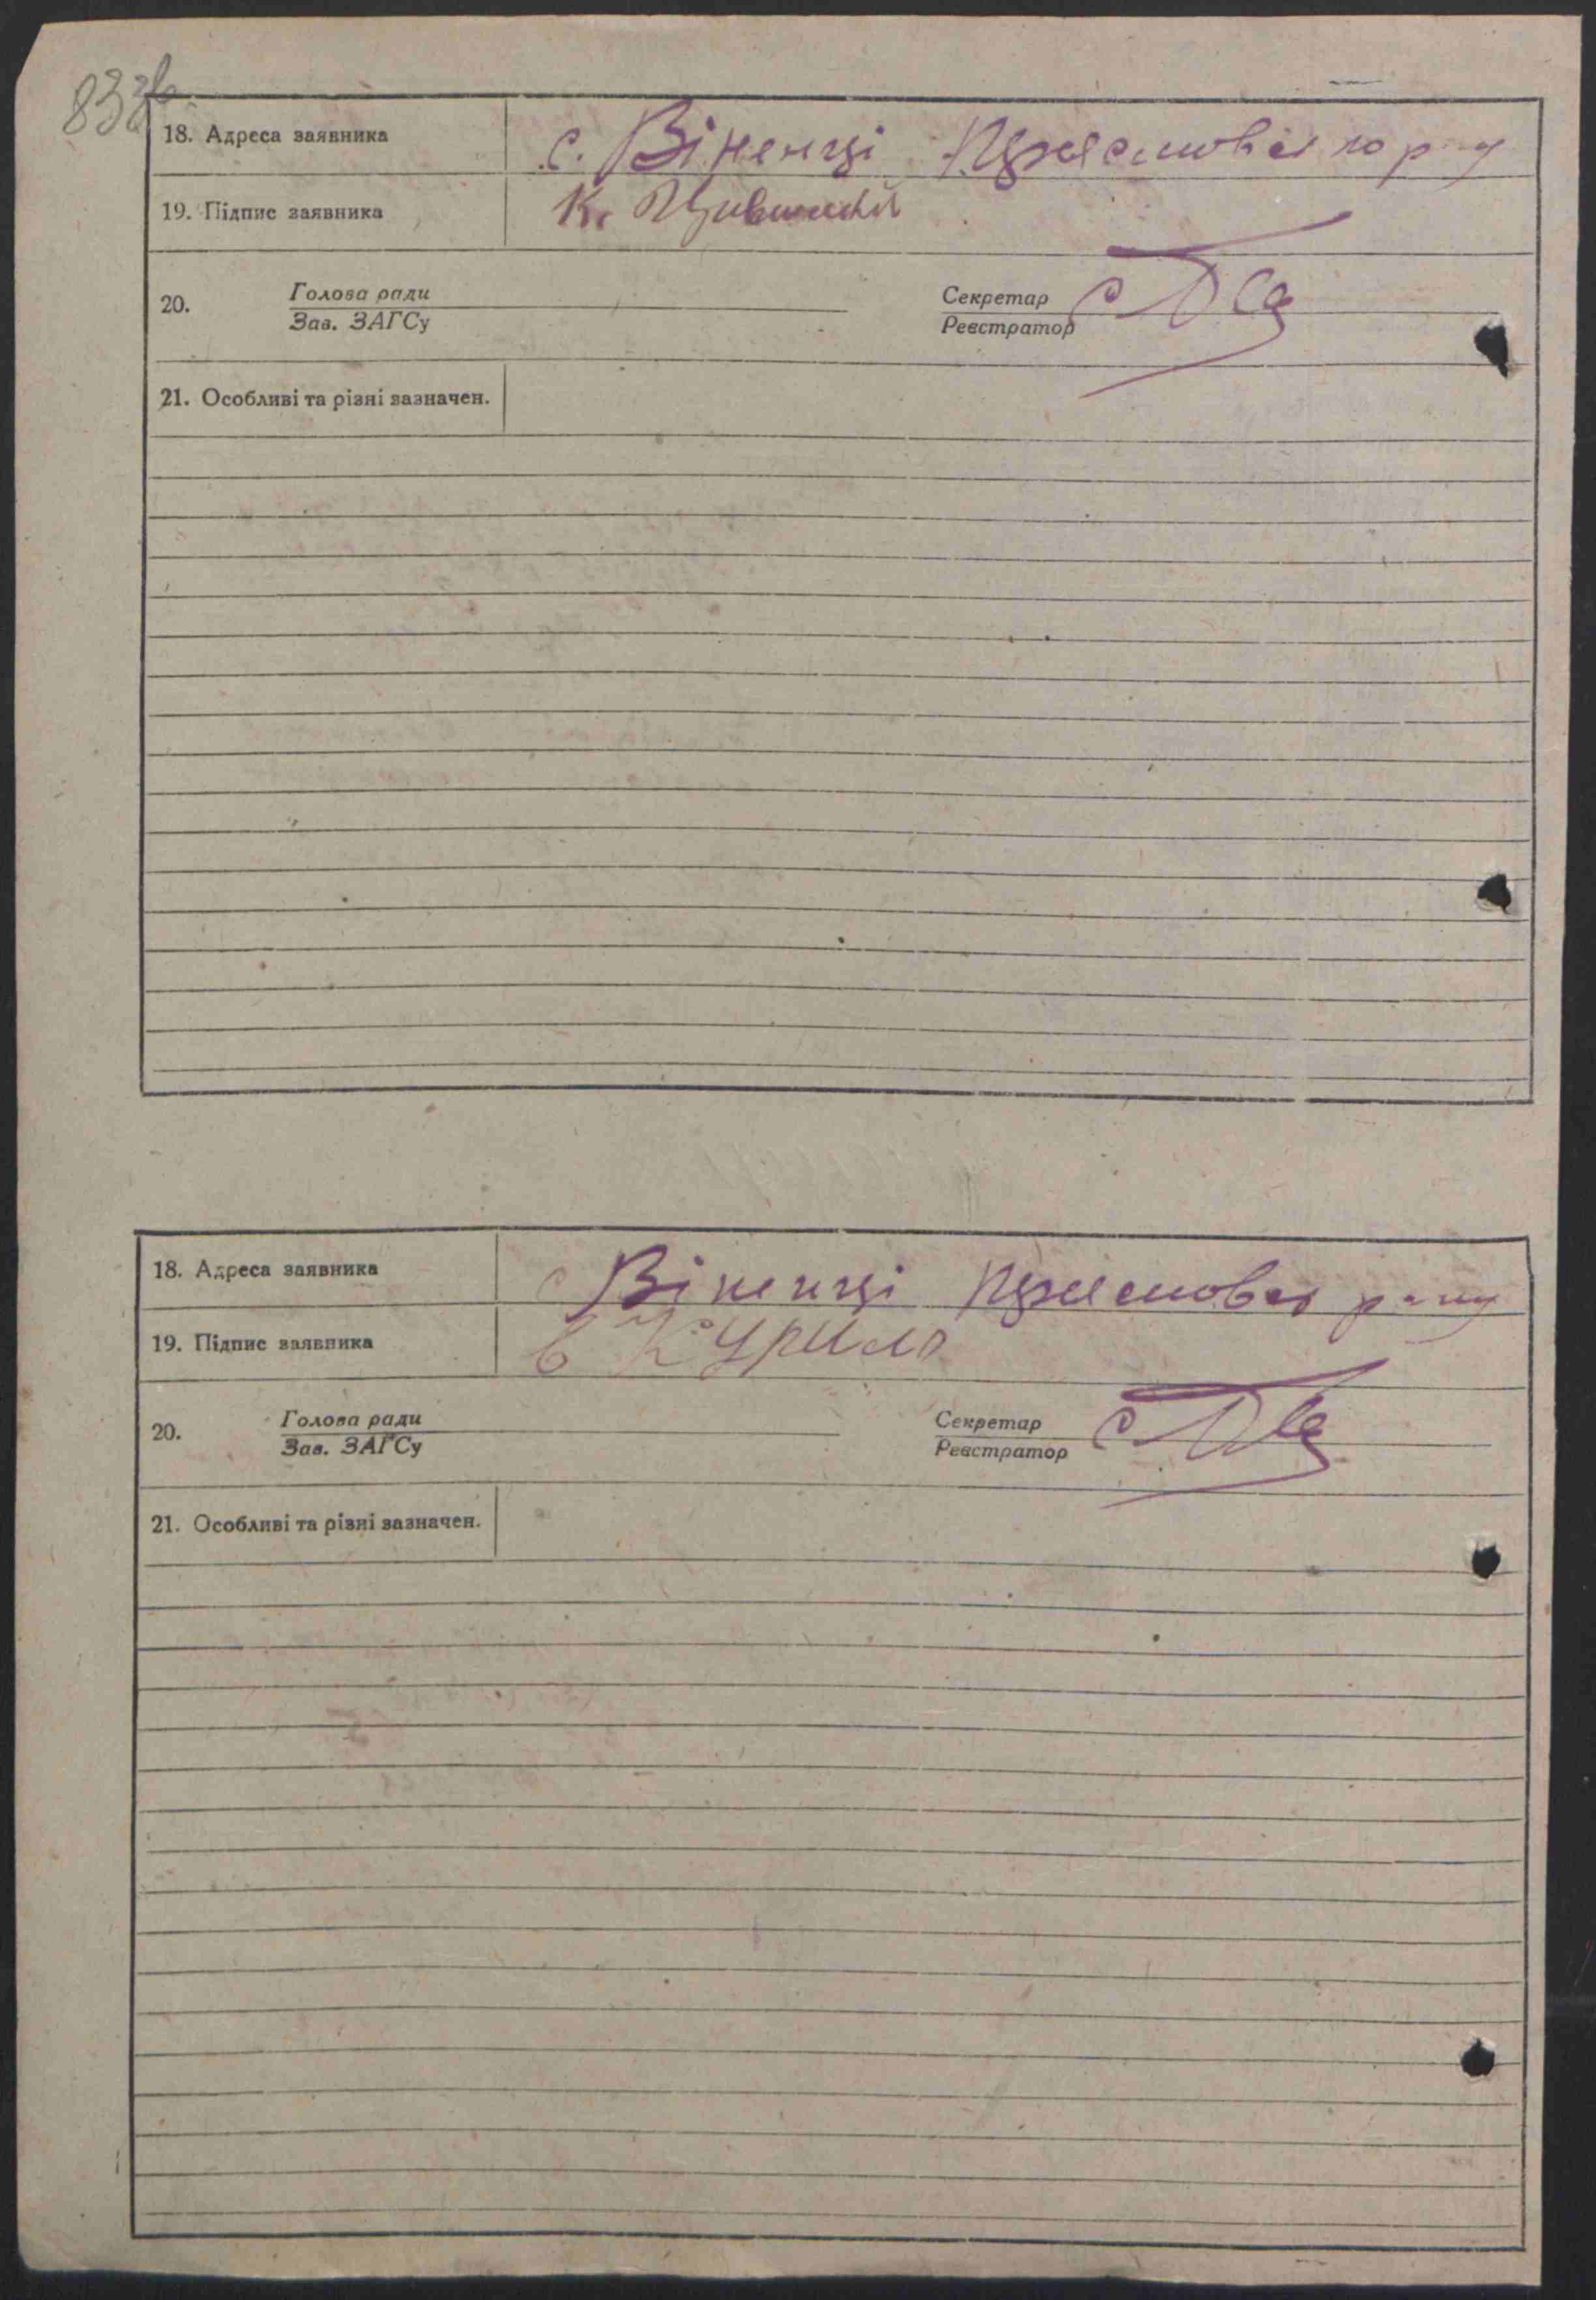 83зв
18. Адреса заявника с. Віненці
19. Підпис заявника К.
20. Голова ради Секретар
Зав. ЗАГСу Реєстратор
21. Особливі та різні зазначен.
18. Адреса заявника с Віненці
19. Підпис заявника Курило
20. Голова ради Секретар
Зав. ЗАГСу Реєстратор
21. Особливі та різні зазначен.